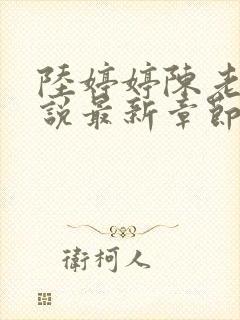 陸婷婷陳老
說最新章節
衛柯人